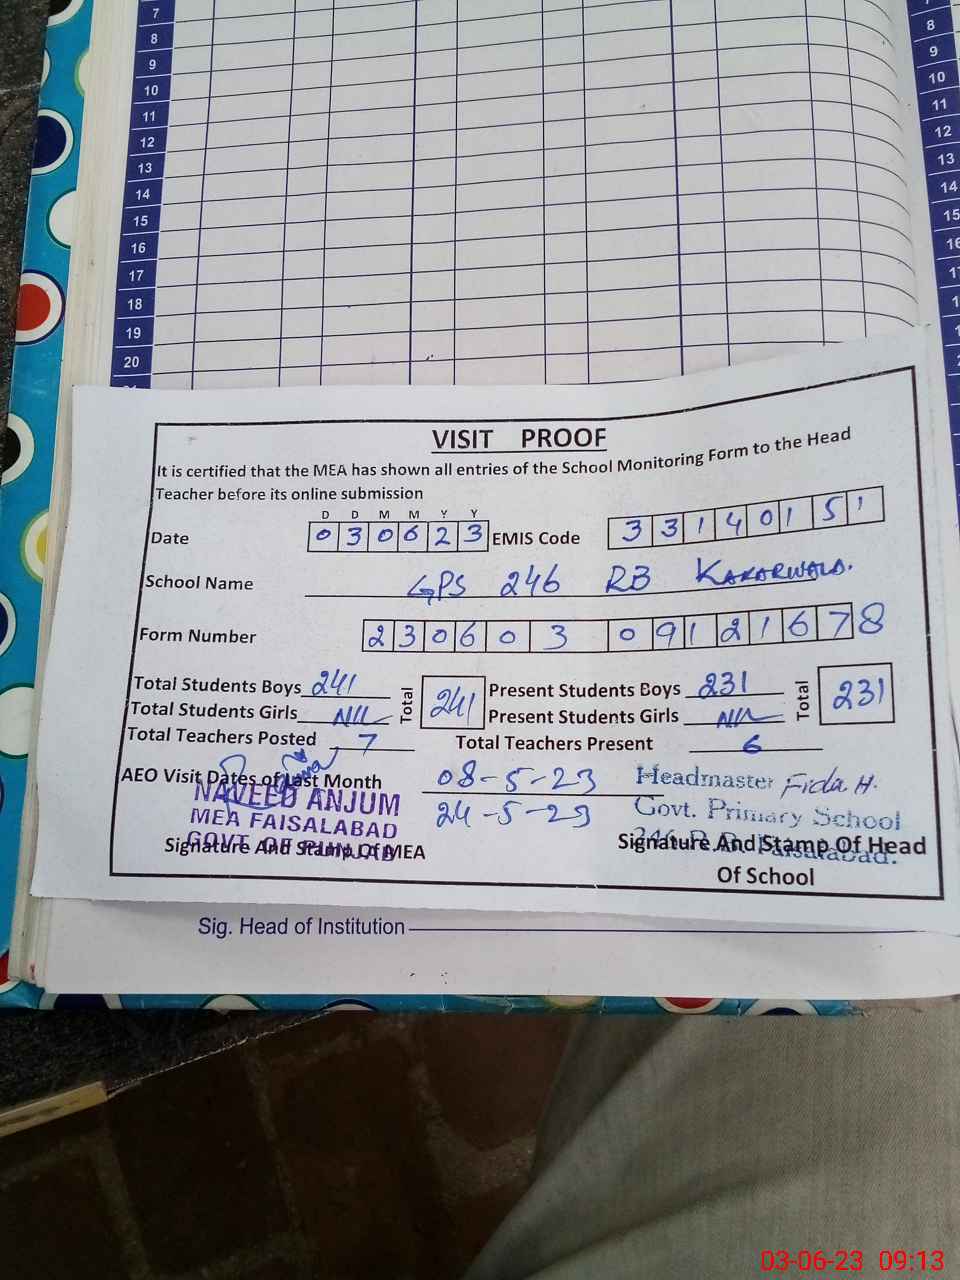 7 7
8 8
9 9
10 10
11 11
12 12
13 13
14 14
15 15
16 16
17 17
18
19
20
VISIT PROOF
It is certified that the MEA has shown all entries of the School Monitoring Form to the Head
Teacher before its online submission
D D M M Y Y
Date 0 3 0 6 2 3 EMIS Code 3 3 1 4 0 1 5 1
School Name GPS 246 RB KAKARWALA.
Form Number 2 3 0 6 0 3 0 9 1 2 1 6 7 8
Total Students Boys 241 Total 241 Present Students Boys 231 Total 231
Total Students Girls Nil Present Students Girls Nil
Total Teachers Posted 7 Total Teachers Present 6
AEO Visit Dates of Last Month 08-5-23 Headmaster Fida H.
NAVEED ANJUM 24-5-23 Govt. Primary School
MEA FAISALABAD 246 R.B. Faisalabad.
GOVT. OF PUNJAB
Signature And Stamp Of MEA Signature And Stamp Of Head
Of School
Sig. Head of Institution
03-06-23 09:13